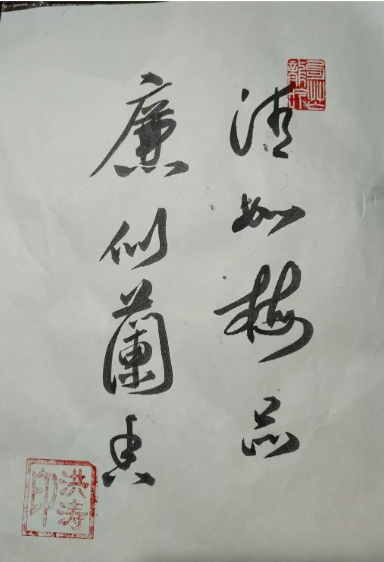 清如梅品
廉似蘭香
洪寿印